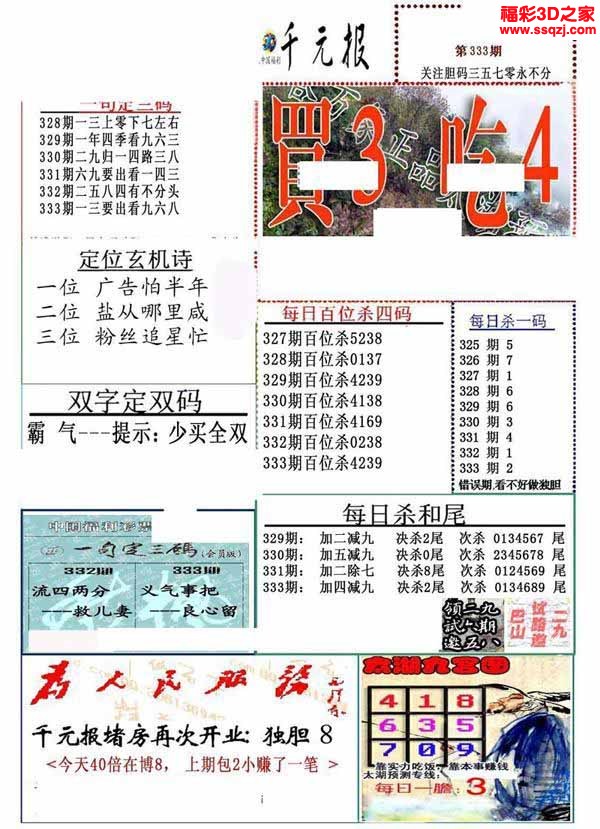 福彩3D之家
www.ssqzj.com
中国福彩
千元报
第333期
关注胆码三五七零永不分
一句定三码
328期一三上零下七左右
329期一年四季看九六三
330期二九归一四路三八
331期六九要出看一四三
332期二五八四有不分头
333期一三要出看九六八
買3 吃4
正品
定位玄机诗
一位 广告怕半年
二位 盐从哪里咸
三位 粉丝追星忙
双字定双码
霸 气---提示: 少买全双
每日百位杀四码
327期百位杀5238
328期百位杀0137
329期百位杀4239
330期百位杀4138
331期百位杀4169
332期百位杀0238
333期百位杀4239
每日杀一码
325 期 5
326 期 7
327 期 1
328 期 6
329 期 6
330 期 3
331 期 4
332 期 1
333 期 2
错误期,看不好做独胆
中国福利彩票
一句定三碼(会员版)
332期
流四两分
---救儿妻
333期
义气事把
---良心留
每日杀和尾
329期: 加二减九 决杀2尾 次杀 0134567 尾
330期: 加五减九 决杀0尾 次杀 2345678 尾
331期: 加二除七 决杀8尾 次杀 0124569 尾
333期: 加四减九 决杀2尾 次杀 0134689 尾
领三九
试六期
邀五八
巴山
试路邀
二九
为人民服务
千元报堵房再次开业: 独胆 8
<今天40倍在博8， 上期包2小赚了一笔 >
太湖九宫图
4 1 8
6 3 5
7 0 9
靠实力吃饭, 靠本事赚钱
太湖预测专线:
每日一膽: 3